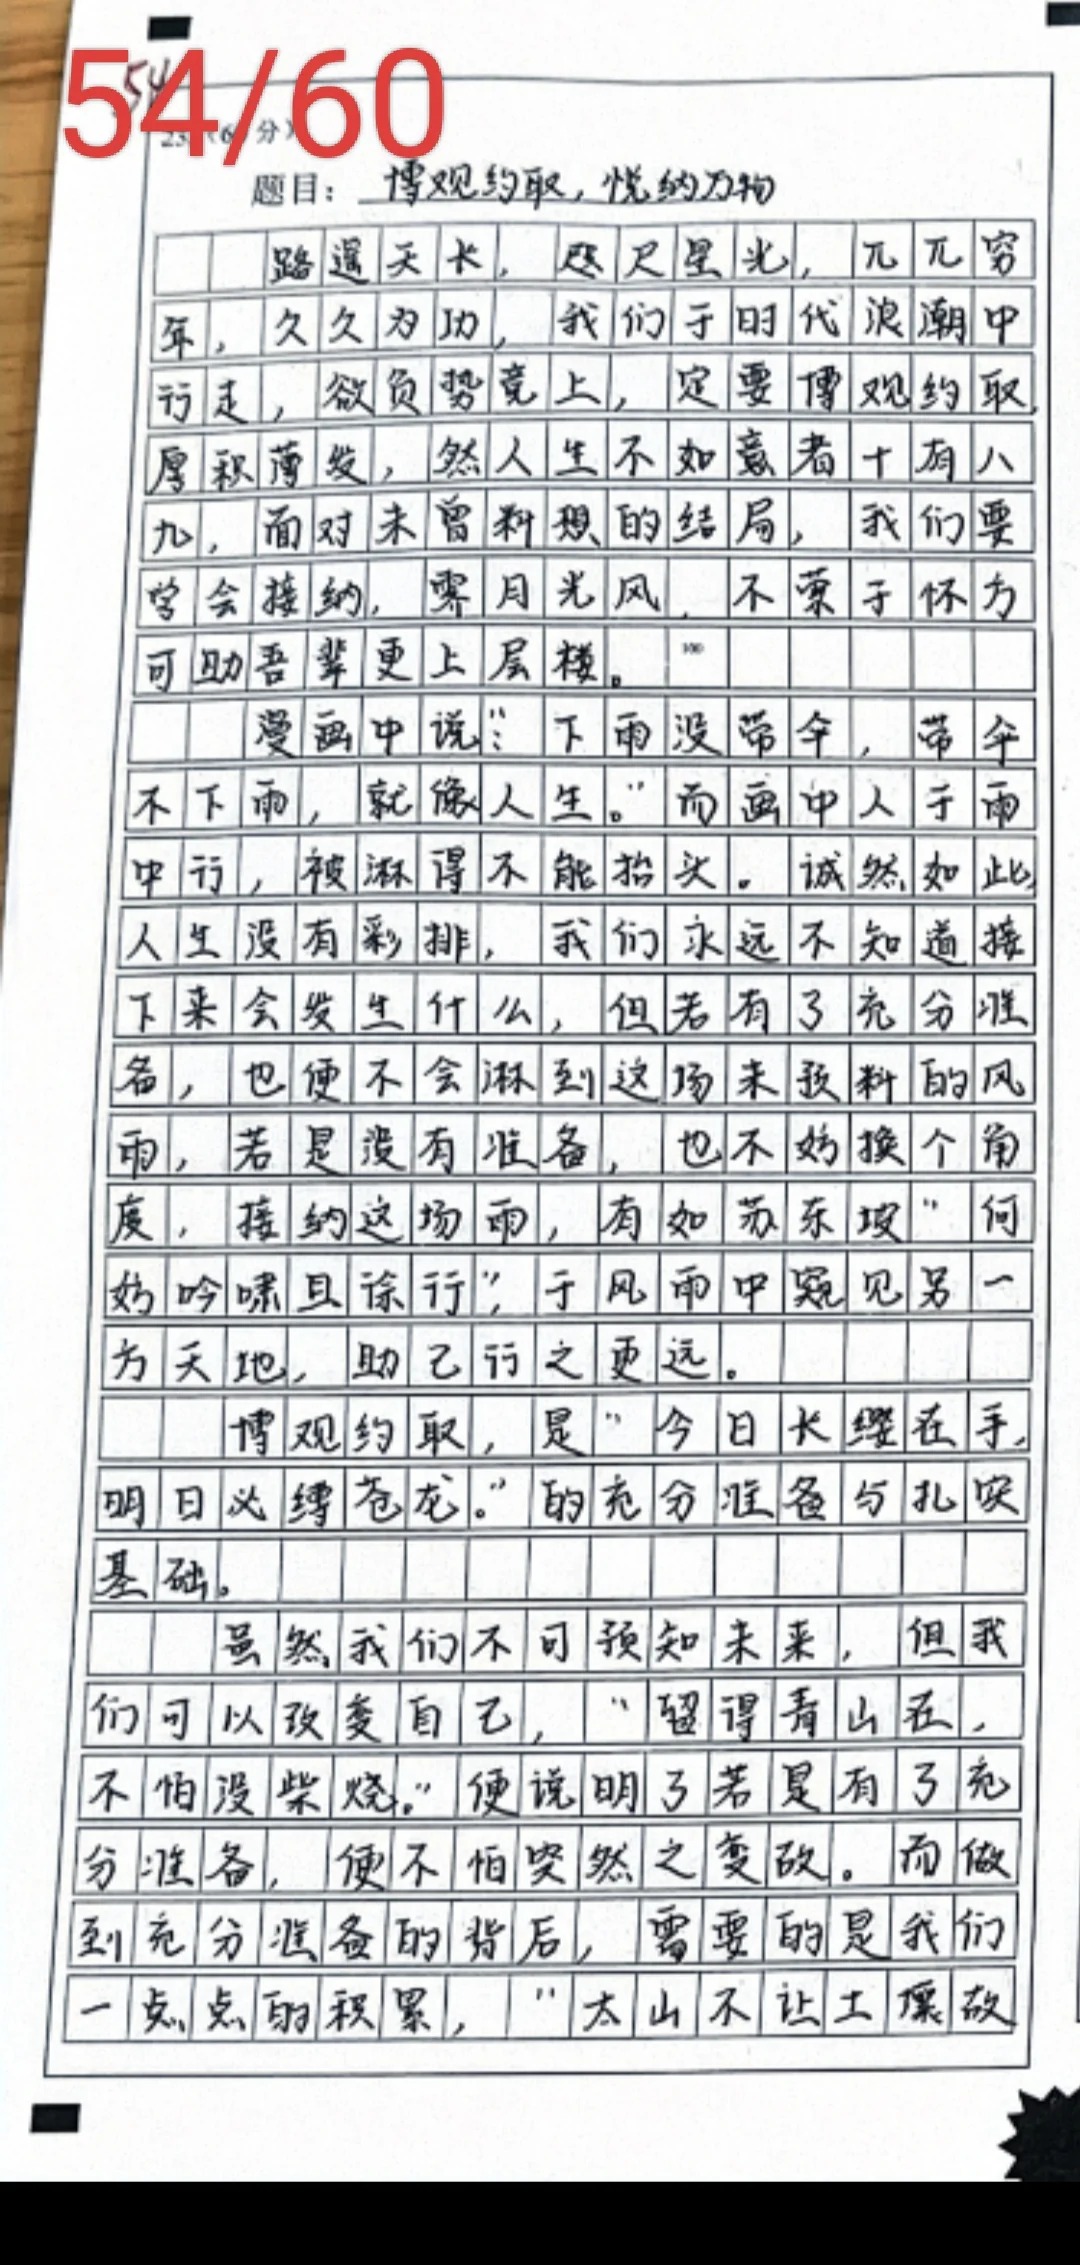 54/60
54
23.(60分)
题目：博观约取，悦纳万物
路遥天长，咫尺星光，兀兀穷
年，久久为功，我们于时代浪潮中
行走，欲负势竞上，定要博观约取，
厚积薄发，然人生不如意者十有八
九，面对未曾料想的结局，我们要
学会接纳，霁月光风，不萦于怀方
可助吾辈更上层楼。
100
漫画中说：“下雨没带伞，带伞
不下雨，就像人生。”而画中人于雨
中行，被淋得不能抬头。诚然如此，
人生没有彩排，我们永远不知道接
下来会发生什么，但若有了充分准
备，也便不会淋到这场未预料的风
雨，若是没有准备，也不妨换个角
度，接纳这场雨，有如苏东坡“何
妨吟啸且徐行”，于风雨中窥见另一
方天地，助己行之更远。
博观约取，是“今日长缨在手，
明日必缚苍龙。”的充分准备与扎实
基础。
虽然我们不可预知未来，但我
们可以改变自己，“留得青山在，
不怕没柴烧。”便说明了若是有了充
分准备，便不怕突然之变故。而做
到充分准备的背后，需要的是我们
一点点的积累，“太山不让土壤故